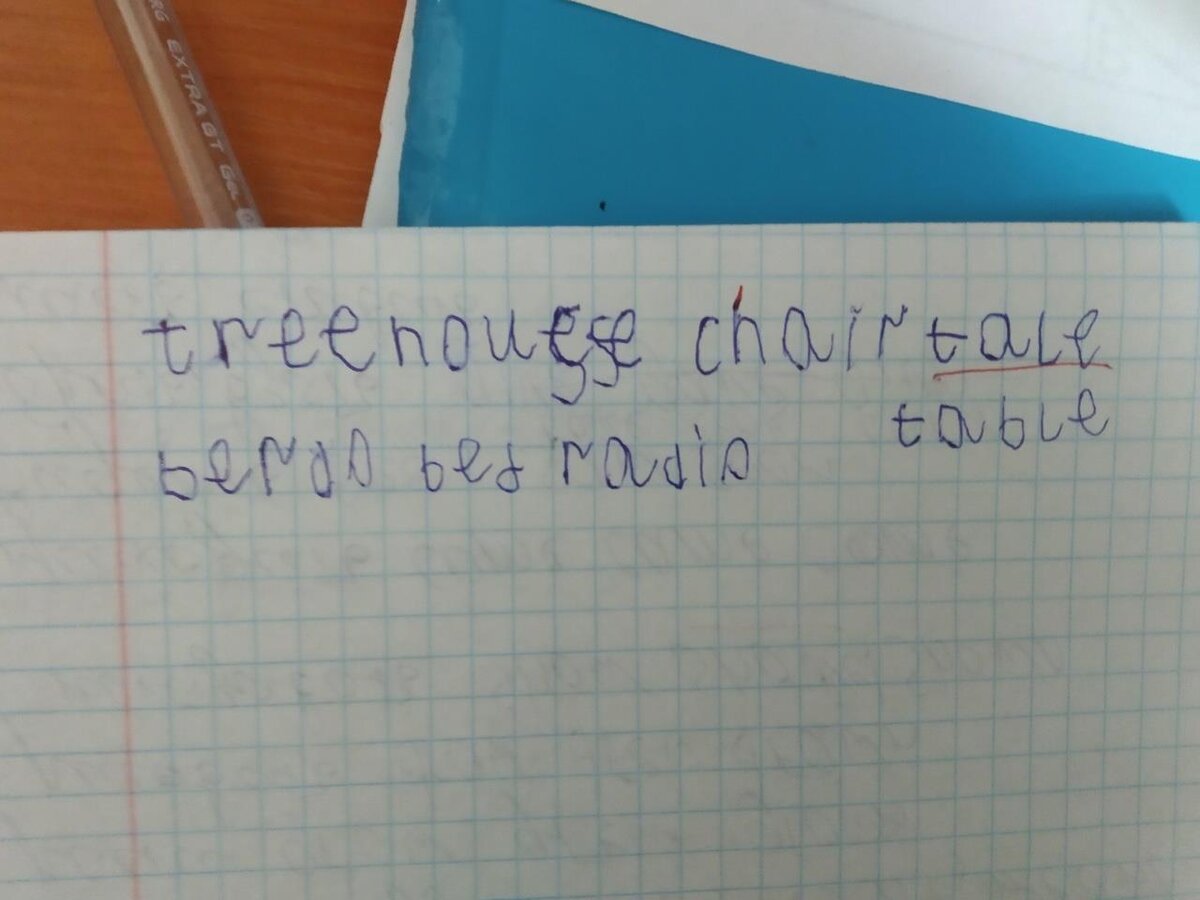 ERG EXTRA GT GEL 0
treenouse chair tale
table
berdo bed radio